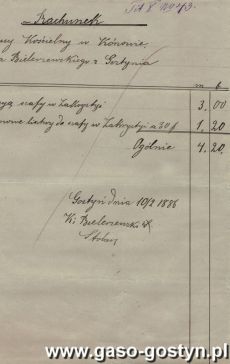 Rachunek
Kościelny w Kunowie
Bielerzewskiego z Gostynia
m f
szafy w Zakrystyi 3,00
do szafy w Zakrystyi a 30 f 1,20
Ogólnie 4,20
Gostyń dnia 10/2 1886
K. Bielerzewski
Stolarz
www.gaso-gostyn.pl